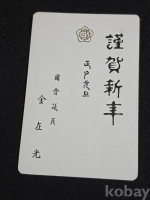 謹賀新年
元旦
國會議員
金在光
kobay